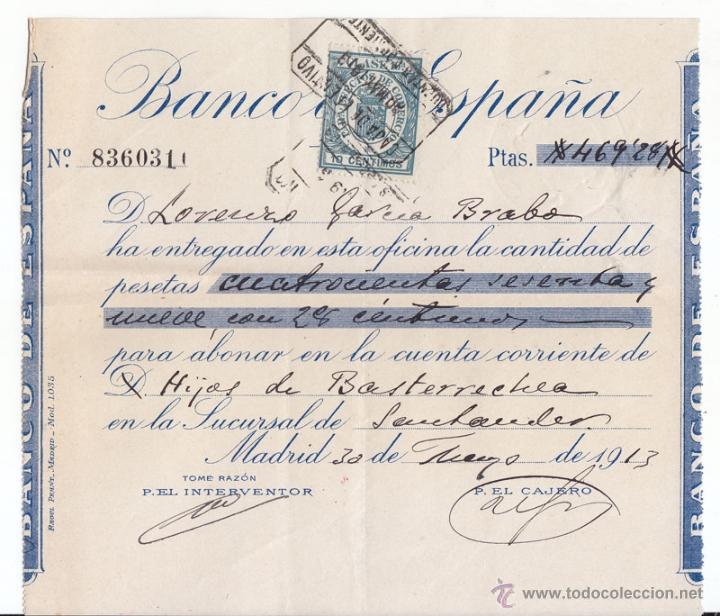 Banco de España
Nº 836031
Ptas. 469'28
ESPECIAL MOVIL
10 CENTIMOS
D. Lorenzo García Brabo
ha entregado en esta oficina la cantidad de
pesetas cuatrocientas sesenta y
nueve con 28 céntimos
para abonar en la cuenta corriente de
D. Hijos de Basterrechea
en la Sucursal de Santander
Madrid 30 de Mayo de 1913
TOME RAZÓN
P. EL INTERVENTOR
P. EL CAJERO
BANCO DE ESPAÑA
BANCO DE ESPAÑA
MADRID — Mod. 1035
www.todocoleccion.net